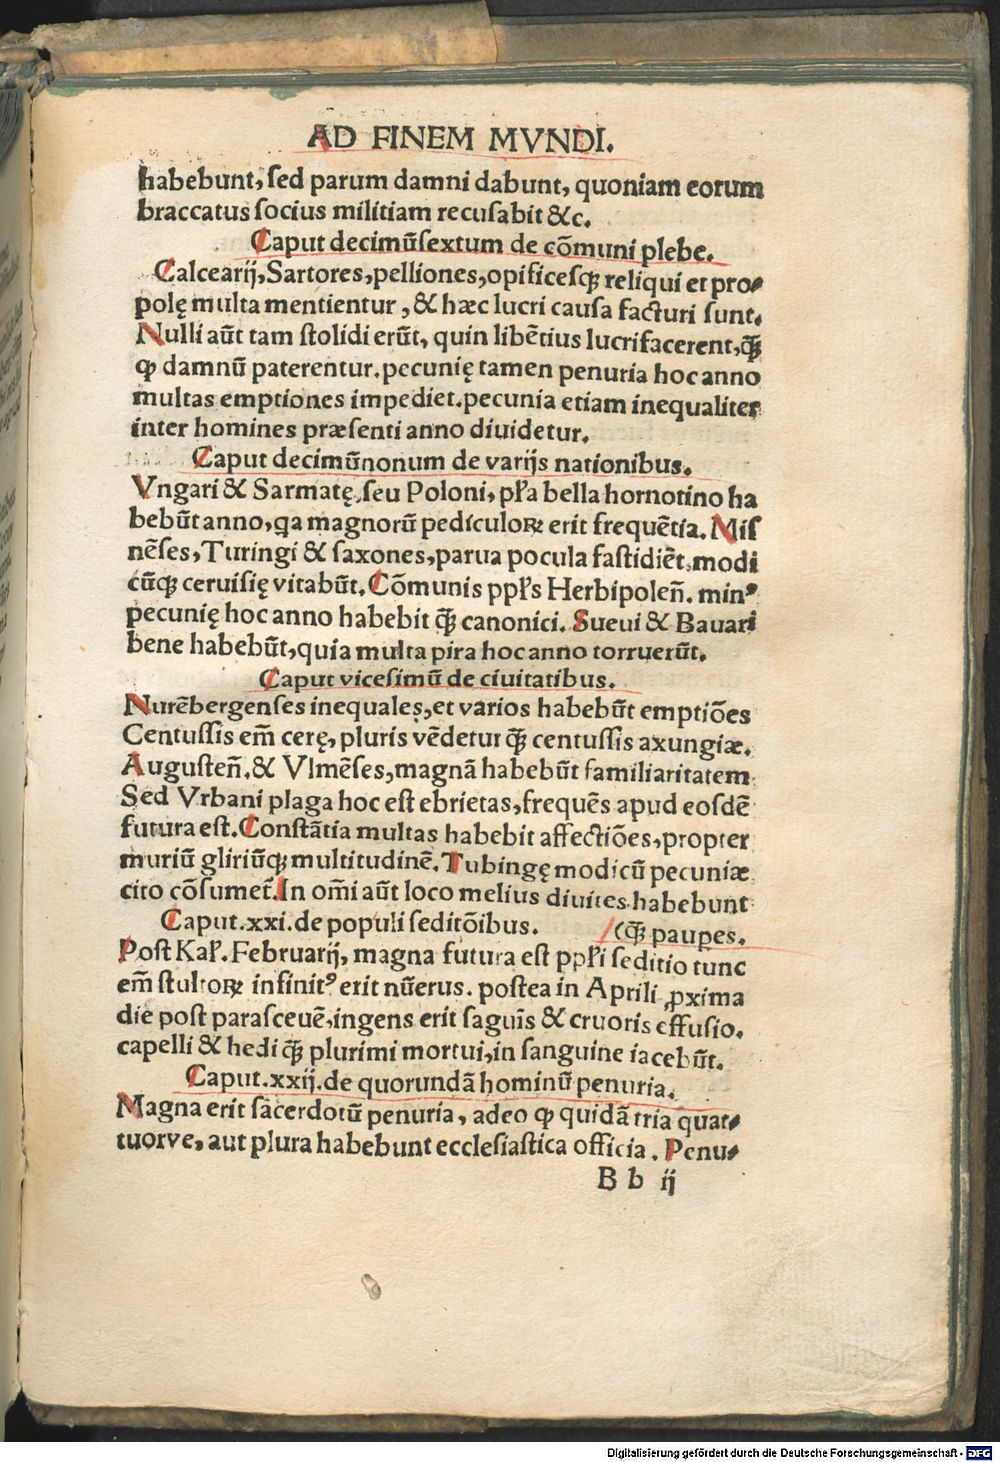 AD FINEM MVNDI.
habebunt, sed parum damni dabunt, quoniam eorum
braccatus socius militiam recusabit &c.
Caput decimũsextum de cõmuni plebe.
Calcearij, Sartores, pelliones, opificesqꝫ reliqui et pro-
polę multa mentientur, & hæc lucri causa facturi sunt.
Nulli aũt tam stolidi erũt, quin libẽtius lucrifacerent, q̃ꝫ
ꝙ damnũ paterentur. pecunię tamen penuria hoc anno
multas emptiones impediet. pecunia etiam inequaliter
inter homines præsenti anno diuidetur.
Caput decimũnonum de varijs nationibus.
Vngari & Sarmatę, seu Poloni, pl̃a bella hornotino ha
bebũt anno, qa magnorũ pediculoꝝ erit frequẽtia. Mis
nẽses, Turingi & saxones, parua pocula fastidiẽt, modi
cũqꝫ ceruisię vitabũt. Cõmunis ppl̃s Herbipoleñ. minꝰ
pecunię hoc anno habebit q̃ꝫ canonici. Sueui & Bauari
bene habebũt, quia multa pira hoc anno torruerũt.
Caput vicesimũ de ciuitatibus.
Nurẽbergenses inequales, et varios habebũt emptiões
Centussis em̃ cerę, pluris vẽdetur q̃ꝫ centussis axungiæ.
Augusteñ. & Vlmẽses, magnã habebũt familiaritatem
Sed Vrbani plaga hoc est ebrietas, frequẽs apud eosdẽ
futura est. Constãtia multas habebit affectiões, propter
muriũ gliriũqꝫ multitudinẽ. Tubingę modicũ pecuniæ
cito cõsumet̃. In om̃i aũt loco melius diuites habebunt
Caput. xxi. de populi seditõibus. (q̃ꝫ paupes.
Post Kal̃. Februarij, magna futura est ppl̃i seditio tunc
em̃ stultoꝝ infinitꝰ erit nũerus. postea in Aprili ꝓxima
die post parasceuẽ, ingens erit saguĩs & cruoris effusio.
capelli & hedi q̃ꝫ plurimi mortui, in sanguine iacebũt.
Caput. xxij. de quorundã hominũ penuria.
Magna erit sacerdotũ penuria, adeo ꝙ quidã tria quat-
tuorve, aut plura habebunt ecclesiastica officia. Penu-
B b ij
Digitalisierung gefördert durch die Deutsche Forschungsgemeinschaft - DFG